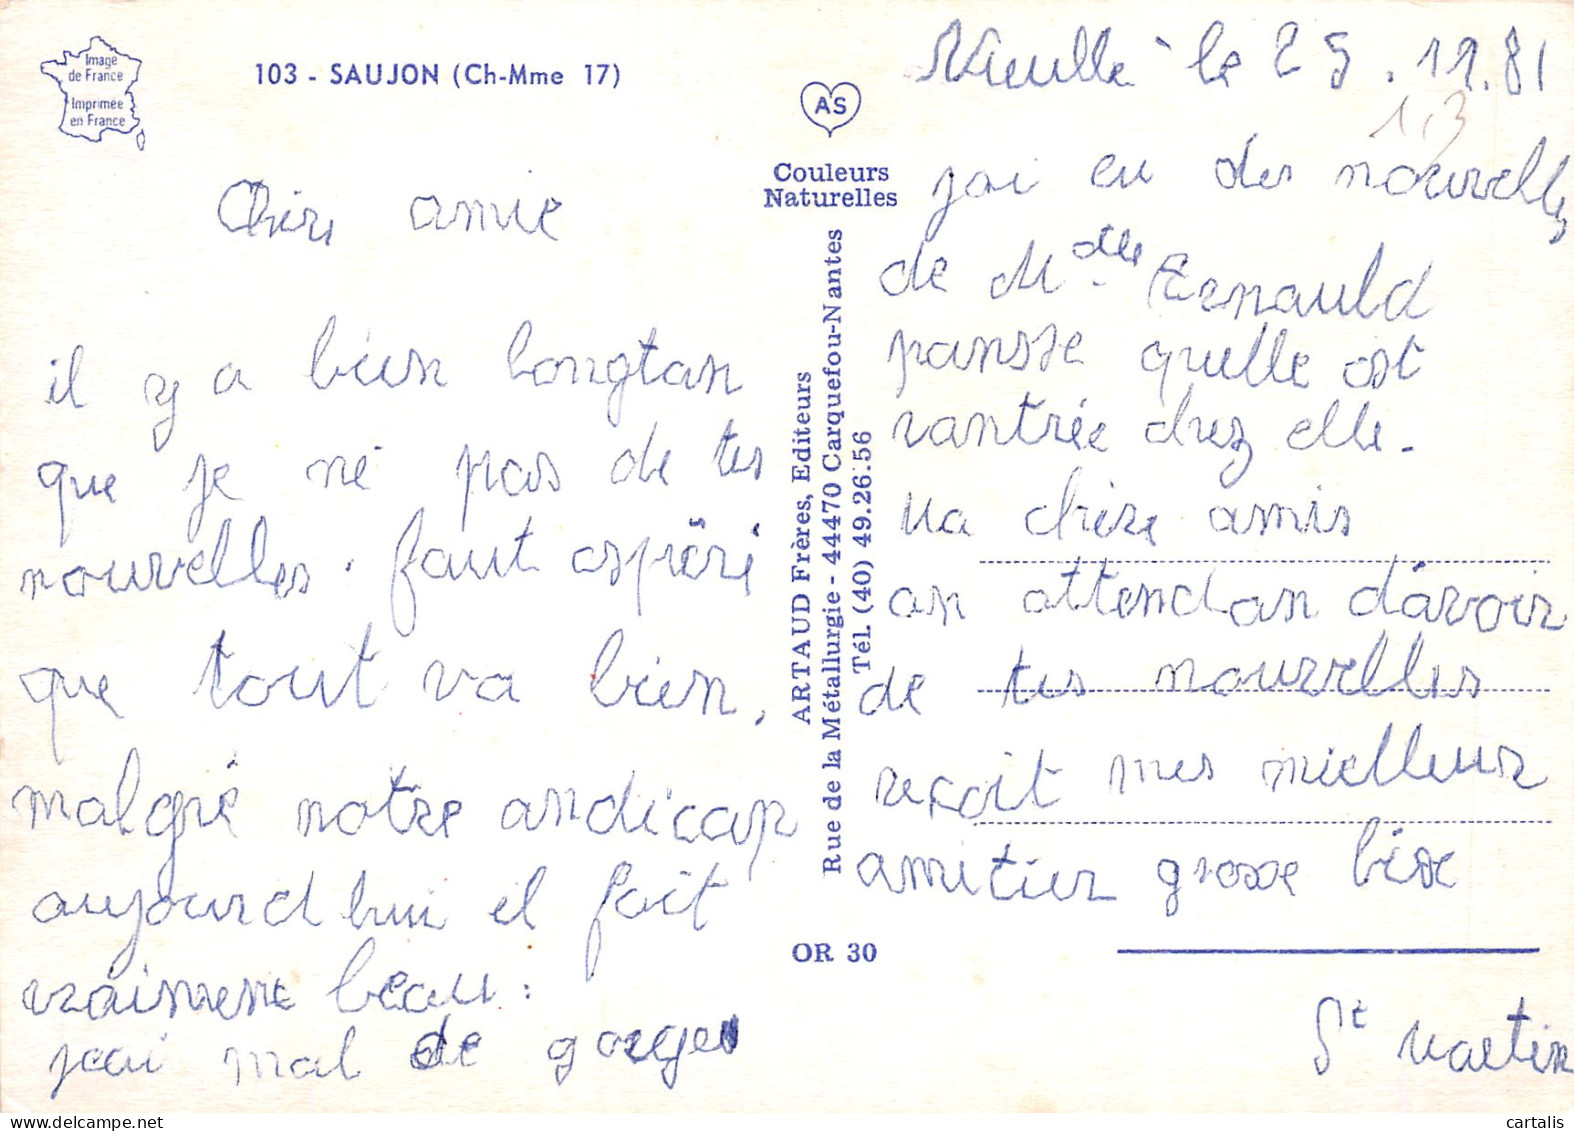 Image
de France
Imprimée
en France
103 - SAUJON (Ch-Mme 17)
Chère amie
il y a bien longtan
que je né pas de tes
nouvelles. faut aspéré
que tout va bien,
malgré notre andicap
aujourd hui il fait
vraiment beau :
jeai mal de gorges
AS
Couleurs
Naturelles
ARTAUD Frères, Editeurs
Rue de la Métallurgie - 44470 Carquefou-Nantes
Tél. (40) 49.26.56
OR 30
le 25.11.81
113
jai eu des nouvelles
de Mdelle Ernauld
pansse quelle est
rantrée chez elle.
Ma chère amis
an attendan d'avoir
de tes nouvelles
reçoit mes mielleur
amitier grosse bise
St Martin
cartalis